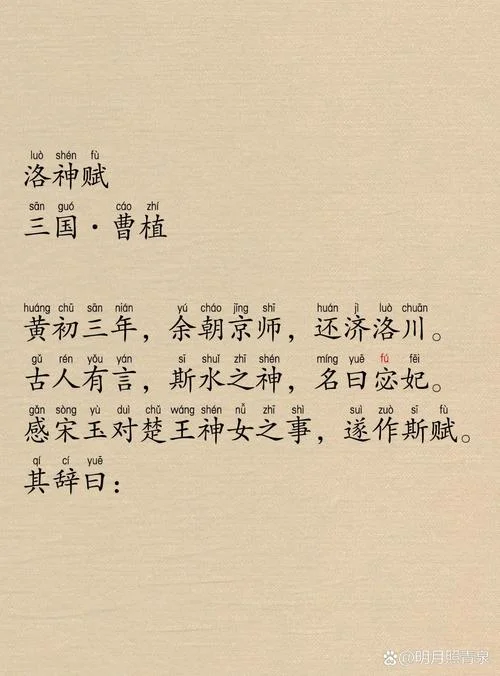 luò shén fù
洛神赋
sān guó cáo zhí
三国·曹植
huáng chū sān nián yú cháo jīng shī huán jì luò chuān
黄初三年，余朝京师，还济洛川。
gǔ rén yǒu yán sī shuǐ zhī shén míng yuē fú fēi
古人有言，斯水之神，名曰宓妃。
gǎn sòng yù duì chǔ wáng shén nǚ zhī shì suì zuò sī fù
感宋玉对楚王神女之事，遂作斯赋。
qí cí yuē
其辞曰：
@明月照青泉